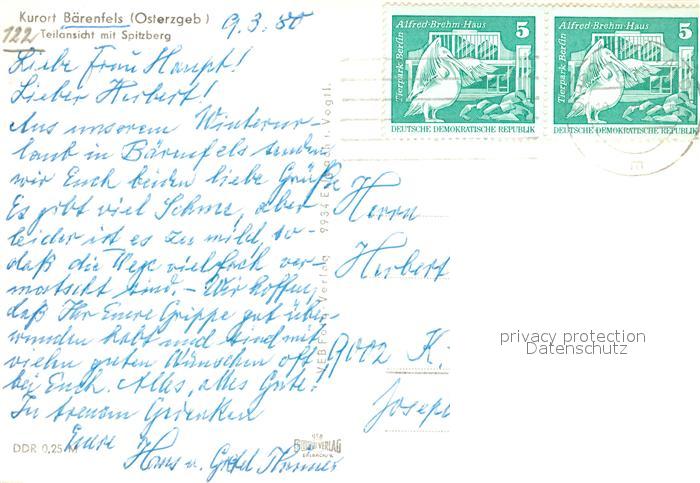 Kurort Bärenfels (Osterzgeb)
Teilansicht mit Spitzberg
122
9.3.80
Liebe Frau Haupt!
Lieber Herbert!
Aus unserem Winterur-
laub in Bärenfels senden
wir Euch beiden liebe Grüße
Es gibt viel Schnee, aber
leider ist es zu mild, so-
daß die Wege vielfach ver-
matscht sind. – Wir hoffen,
daß Ihr Eure Grippe gut über-
wunden habt und sind mit
vielen guten Wünschen oft
bei Euch. Alles, alles Gute!
In treuem Gedenken
Eure
Hans u. Gretel
DDR 0,25 M
Alfred-Brehm-Haus
5
Tierpark Berlin
DEUTSCHE DEMOKRATISCHE REPUBLIK
Alfred-Brehm-Haus
5
Tierpark Berlin
DEUTSCHE DEMOKRATISCHE REPUBLIK
Herrn
Herbert
9002 K.
Josep
VEB Verlag 9934 i. Vogtl.
VERLAG
privacy protection
Datenschutz